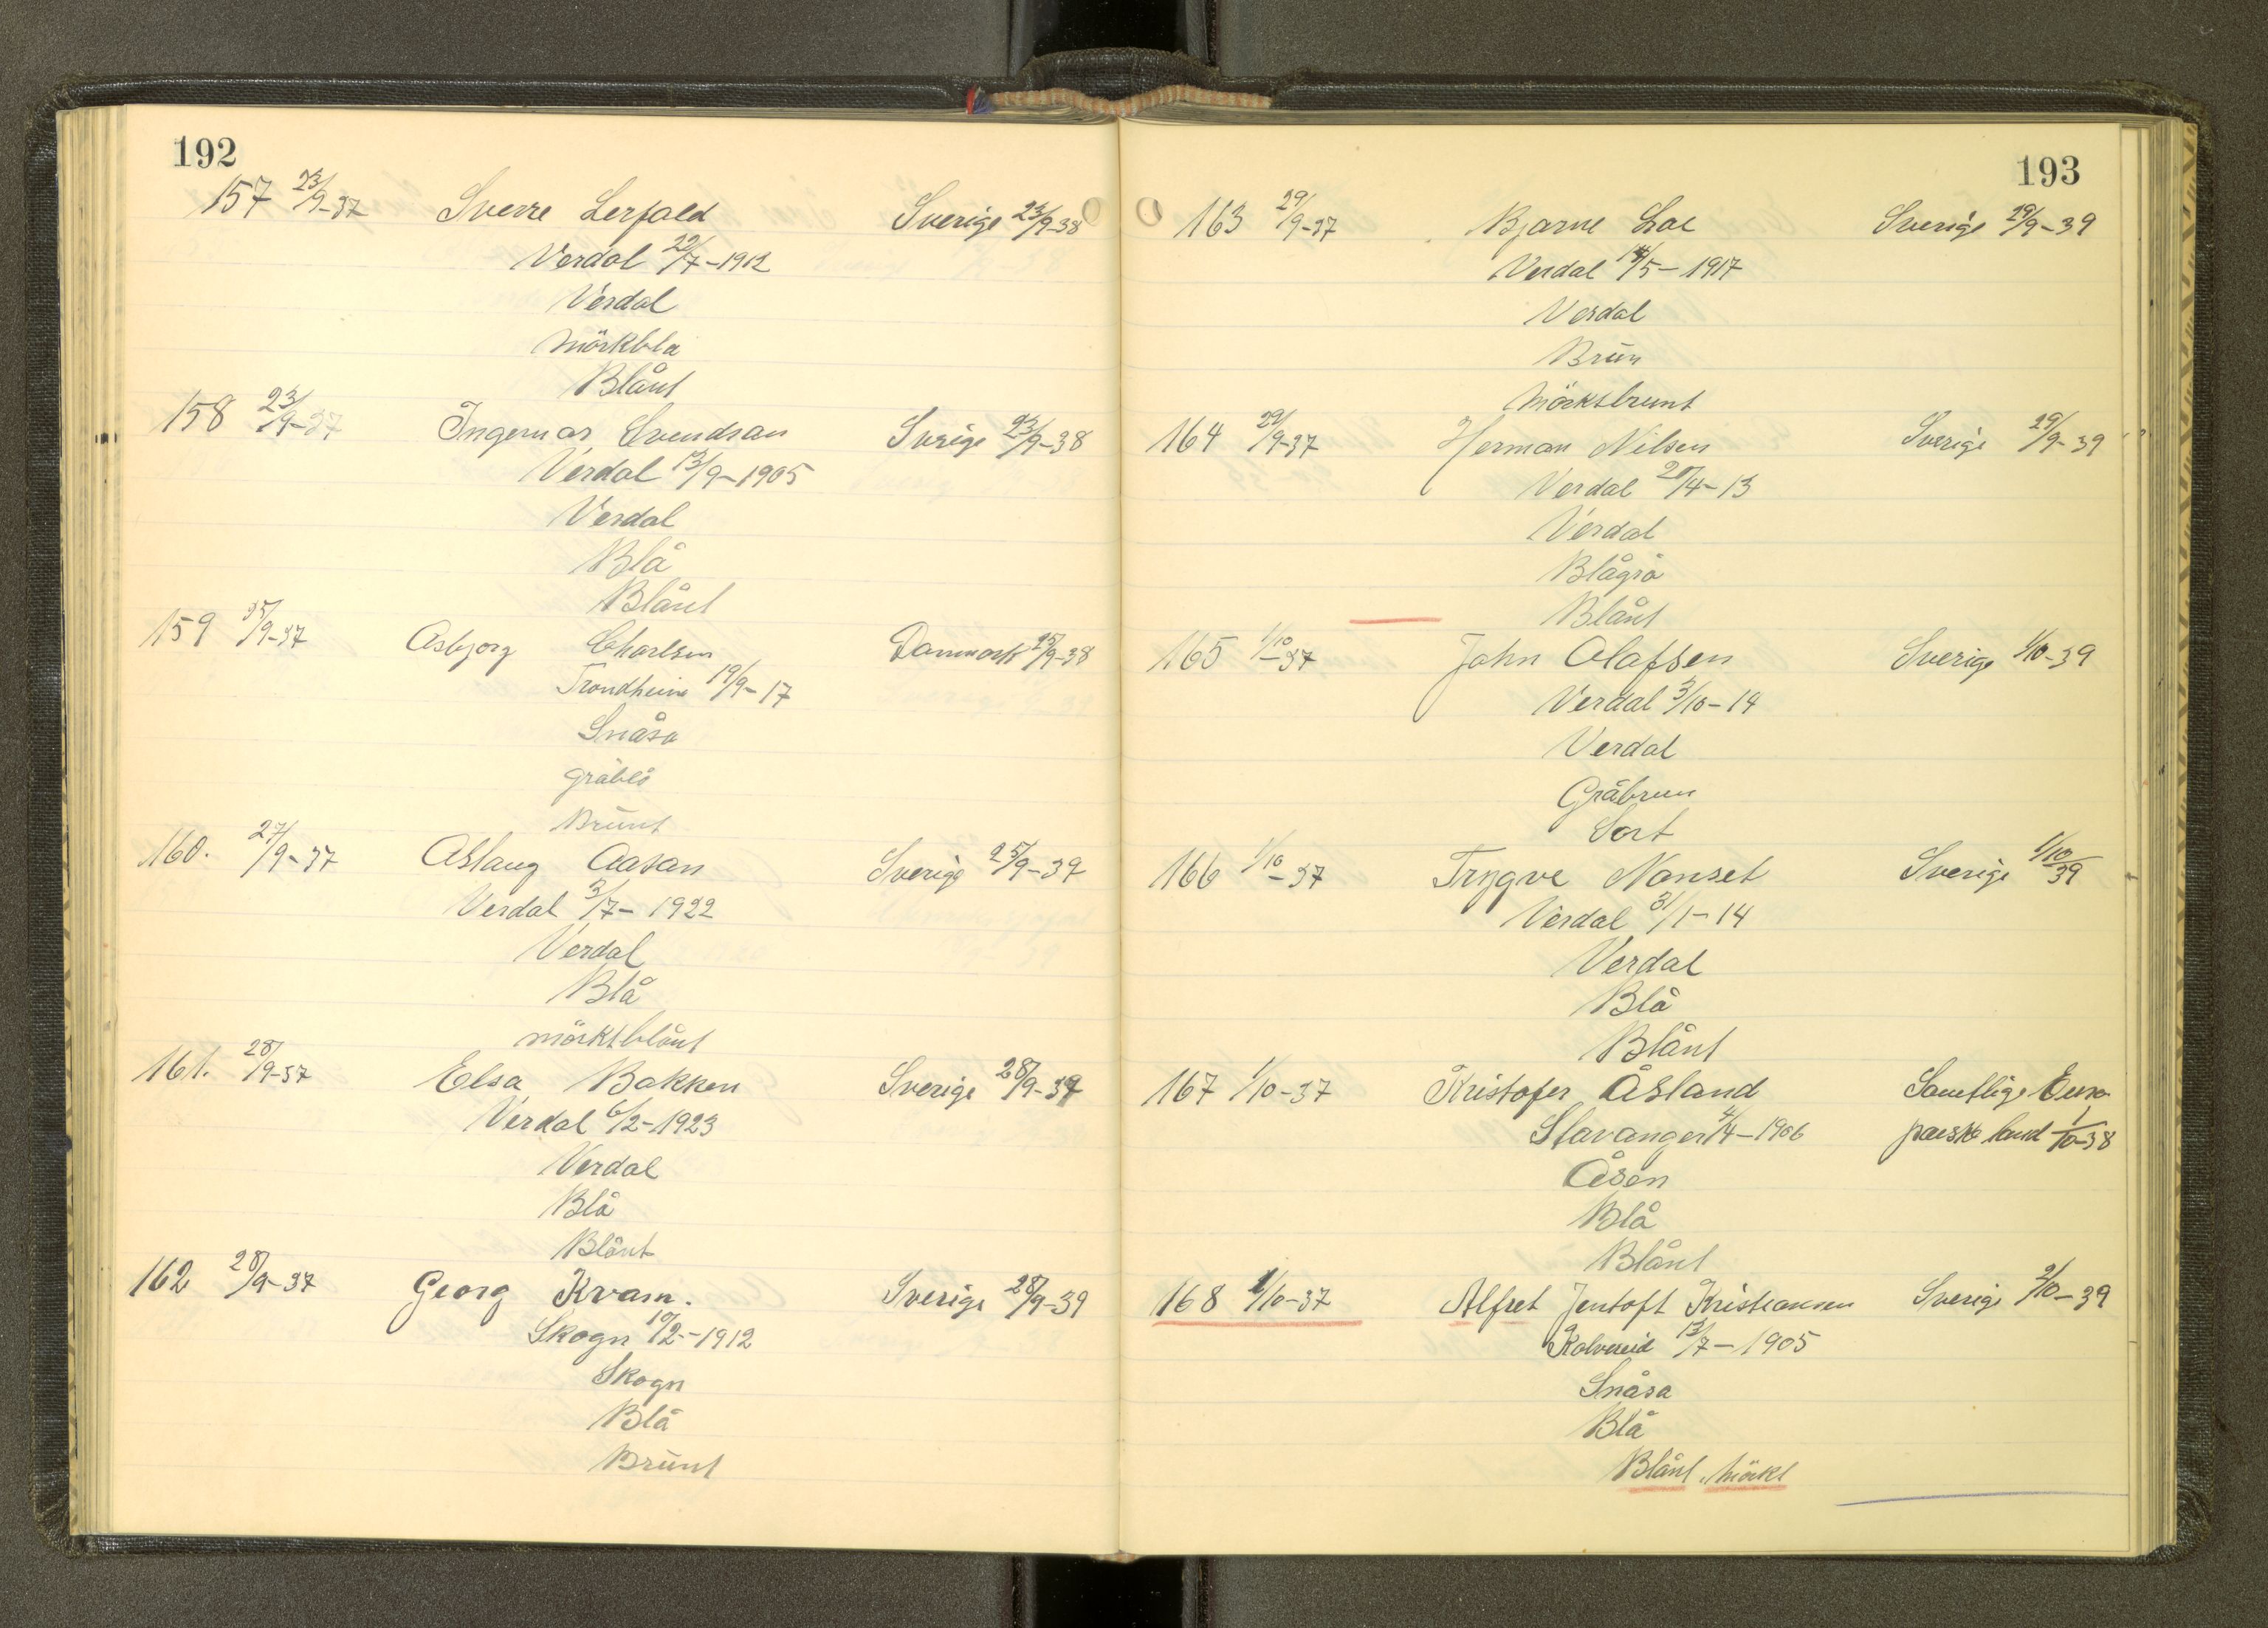 192
157 23/9-37 Sverre Lerfald Sverige 23/9-38
Verdal 22/7-1912
Verdal
Mörkbla
Blånt
158 23/9-37 Ingemar Svendsan Sverige 23/9-38
Verdal 13/9-1905
Verdal
Blå
Blånt
159 /9-37 Asbjorg Charlsen Danmark 25/9-38
Trondheim 19/9-17
Snåsa
gråblå
Brunt
160. 27/9-37 Aslaug Aasan Sverige 25/9-39
Verdal 3/7-1922
Verdal
Blå
mörktblånt
161. 28/9-37 Elsa Bakken Sverige 28/9-39
Verdal 6/2-1923
Verdal
Blå
Blånt
162 28/9-37 Georg Kvam. Sverige 28/9-39
Skogn 10/2-1912
Skogn
Blå
Brunt
193
163 29/9-37 Bjarne Loe Sverige 29/9-39
Verdal /5-1917
Verdal
Brun
Mörktbrunt
164 29/9-37 Herman Nilsen Sverige 29/9-39
Verdal 20/4-13
Verdal
Blågrå
Blånt
165 1/10-37 John Olafsen Sverige 1/10-39
Verdal 3/10-14
Verdal
Gråbrun
Sort
166 1/10-37 Trygve Nonset Sverige 1/10 39
Verdal 31/1-14
Verdal
Blå
Blånt
167 1/10-37 Kristofer Åsland Samtlige Euro-
Stavanger 4/4-1906 paeiske land 1/10-38
Åsen
Blå
Blånt
168 1/10-37 Alfret Jentoft Kristiansen Sverige 2/10-39
Kolvereid 13/7-1905
Snåsa
Blå
Blånt, mörkt